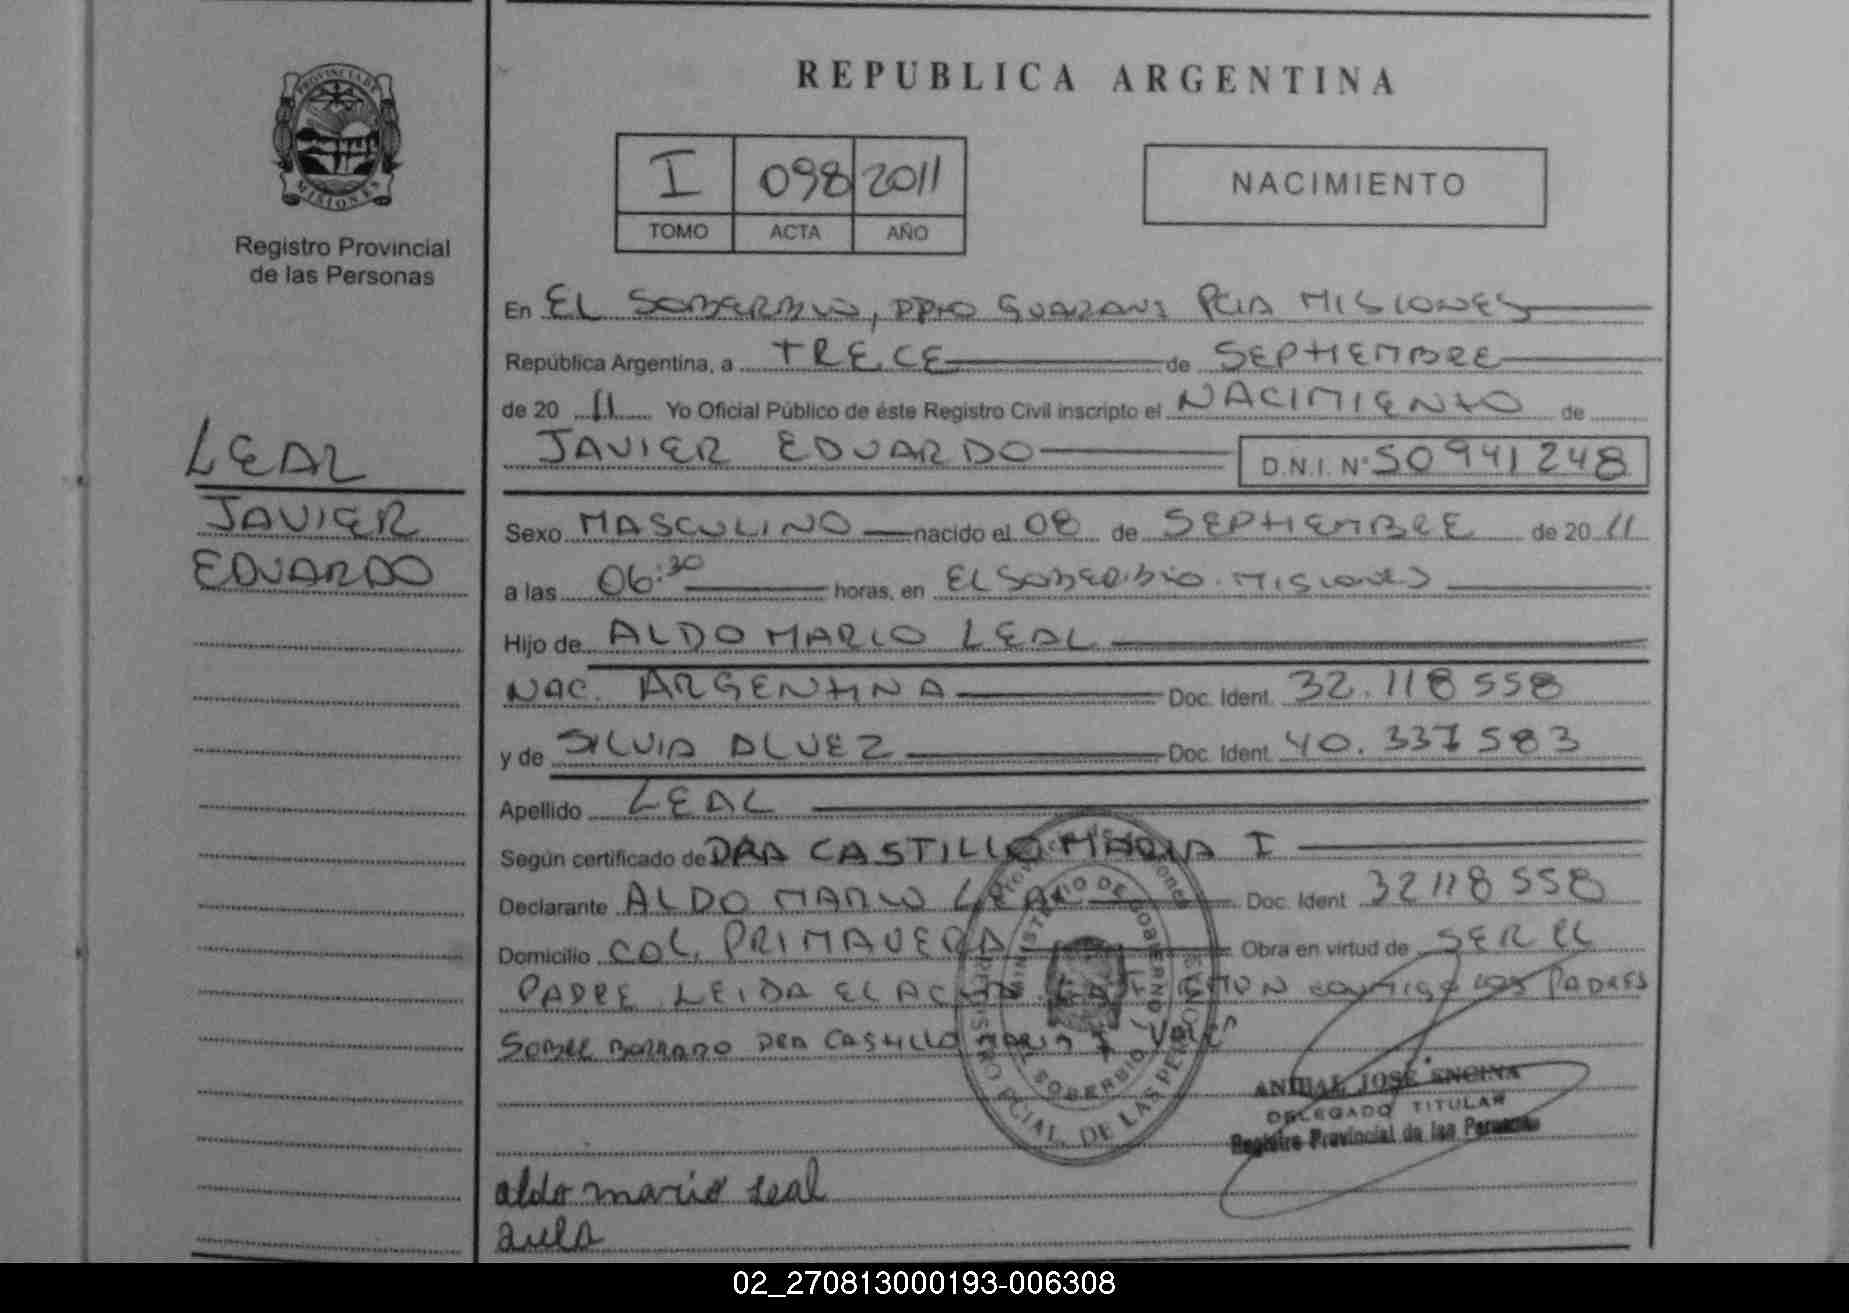 PROVINCIA DE
MISIONES
Registro Provincial
de las Personas
LEAL
JAVIER
EDUARDO
REPUBLICA ARGENTINA
I 098 2011
TOMO ACTA AÑO
NACIMIENTO
En EL SOBERBIO, DPTO GUARANI PCIA MISIONES
República Argentina, a TRECE de SEPTIEMBRE
de 20 11 Yo Oficial Público de éste Registro Civil inscripto el NACIMIENTO de
JAVIER EDUARDO D.N.I. N° 50941248
Sexo MASCULINO nacido el 08 de SEPTIEMBRE de 20 11
a las 06:30 horas, en EL SOBERBIO. MISIONES
Hijo de ALDO MARIO LEAL
NAC. ARGENTINA Doc. Ident. 32.118558
y de SILVIA ALVEZ Doc. Ident. 40.337583
Apellido LEAL
Según certificado de DRA CASTILLO MARIA I
Declarante ALDO MARIO LEAL Doc. Ident 32118558
Domicilio COL. PRIMAVERA Obra en virtud de SER EL
PADRE LEIDA EL ACTA CONMIGO LOS PADRES
SOBRE BORRADO DRA CASTILLO MARIA I VALE
MINISTERIO DE GOBIERNO
REGISTRO PCIAL. DE LAS PERSONAS
EL SOBERBIO
ANIBAL JOSÉ ENCINA
DELEGADO TITULAR
Registro Provincial de las Personas
aldo mario Leal
02_270813000193-006308